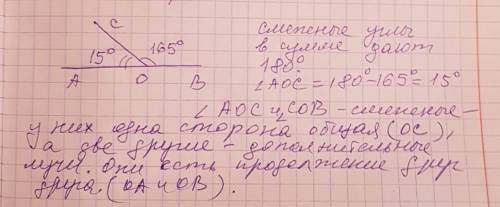 C
15° 165°
A O B
смежные углы
в сумме дают
180°
∠AOC = 180°-165° = 15°
∠AOC и ∠COB - смежные -
у них одна сторона общая (OC),
а две другие - дополнительные
лучи. Они есть продолжение друг
друга. (OA и OB).